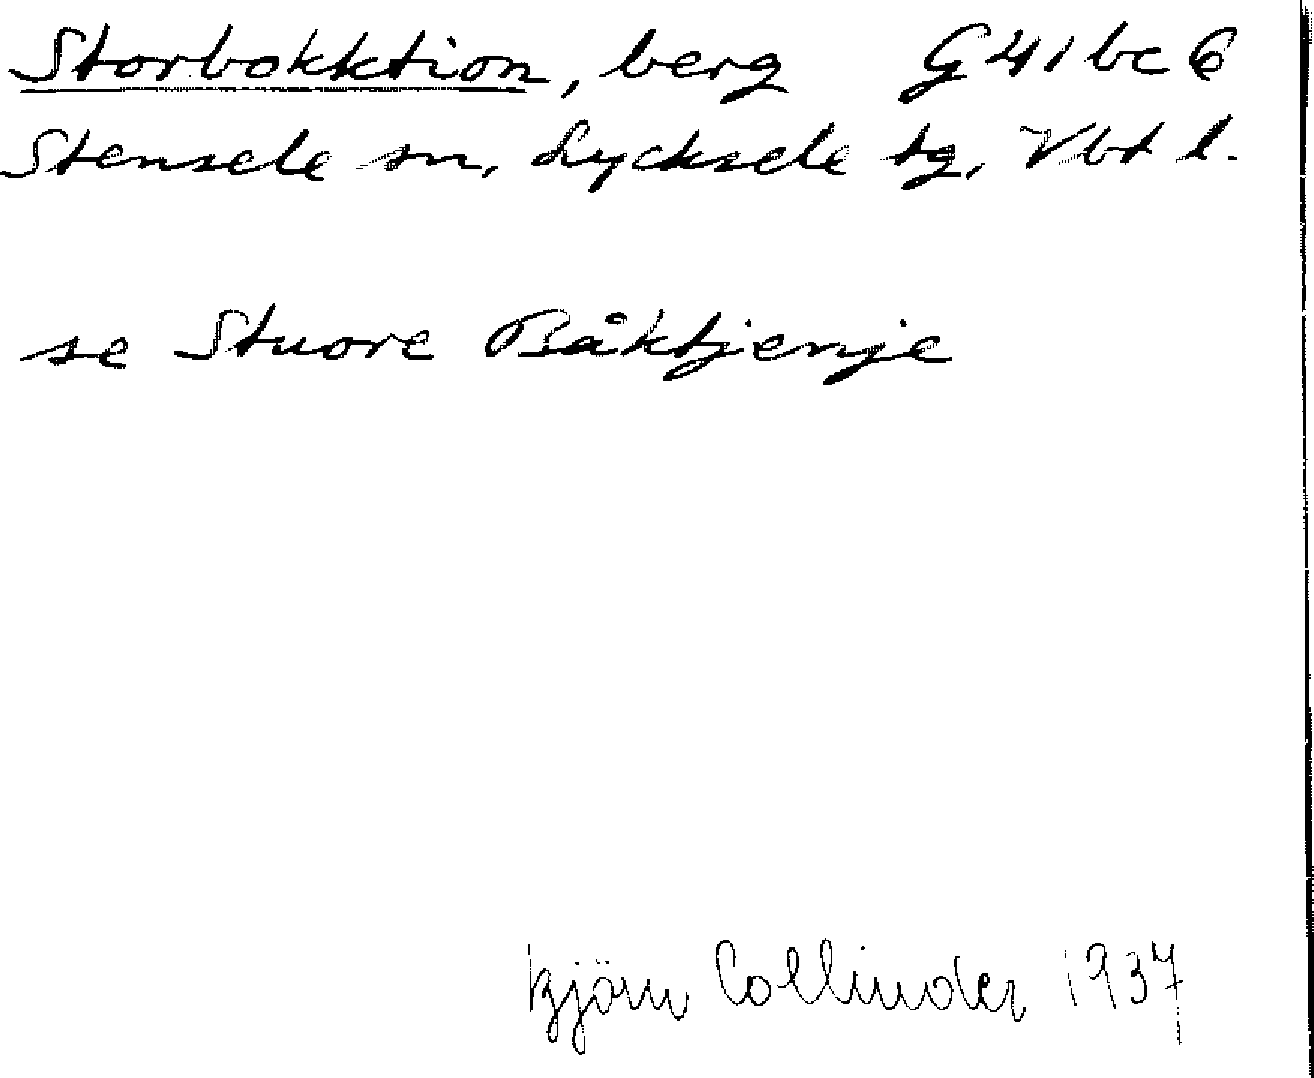 Storbokktion, berg G 41 bc 6
Stensele sn, Lycksele tg, Vbt l.
se Stuore Båktjenje
Björn Collinder 1937